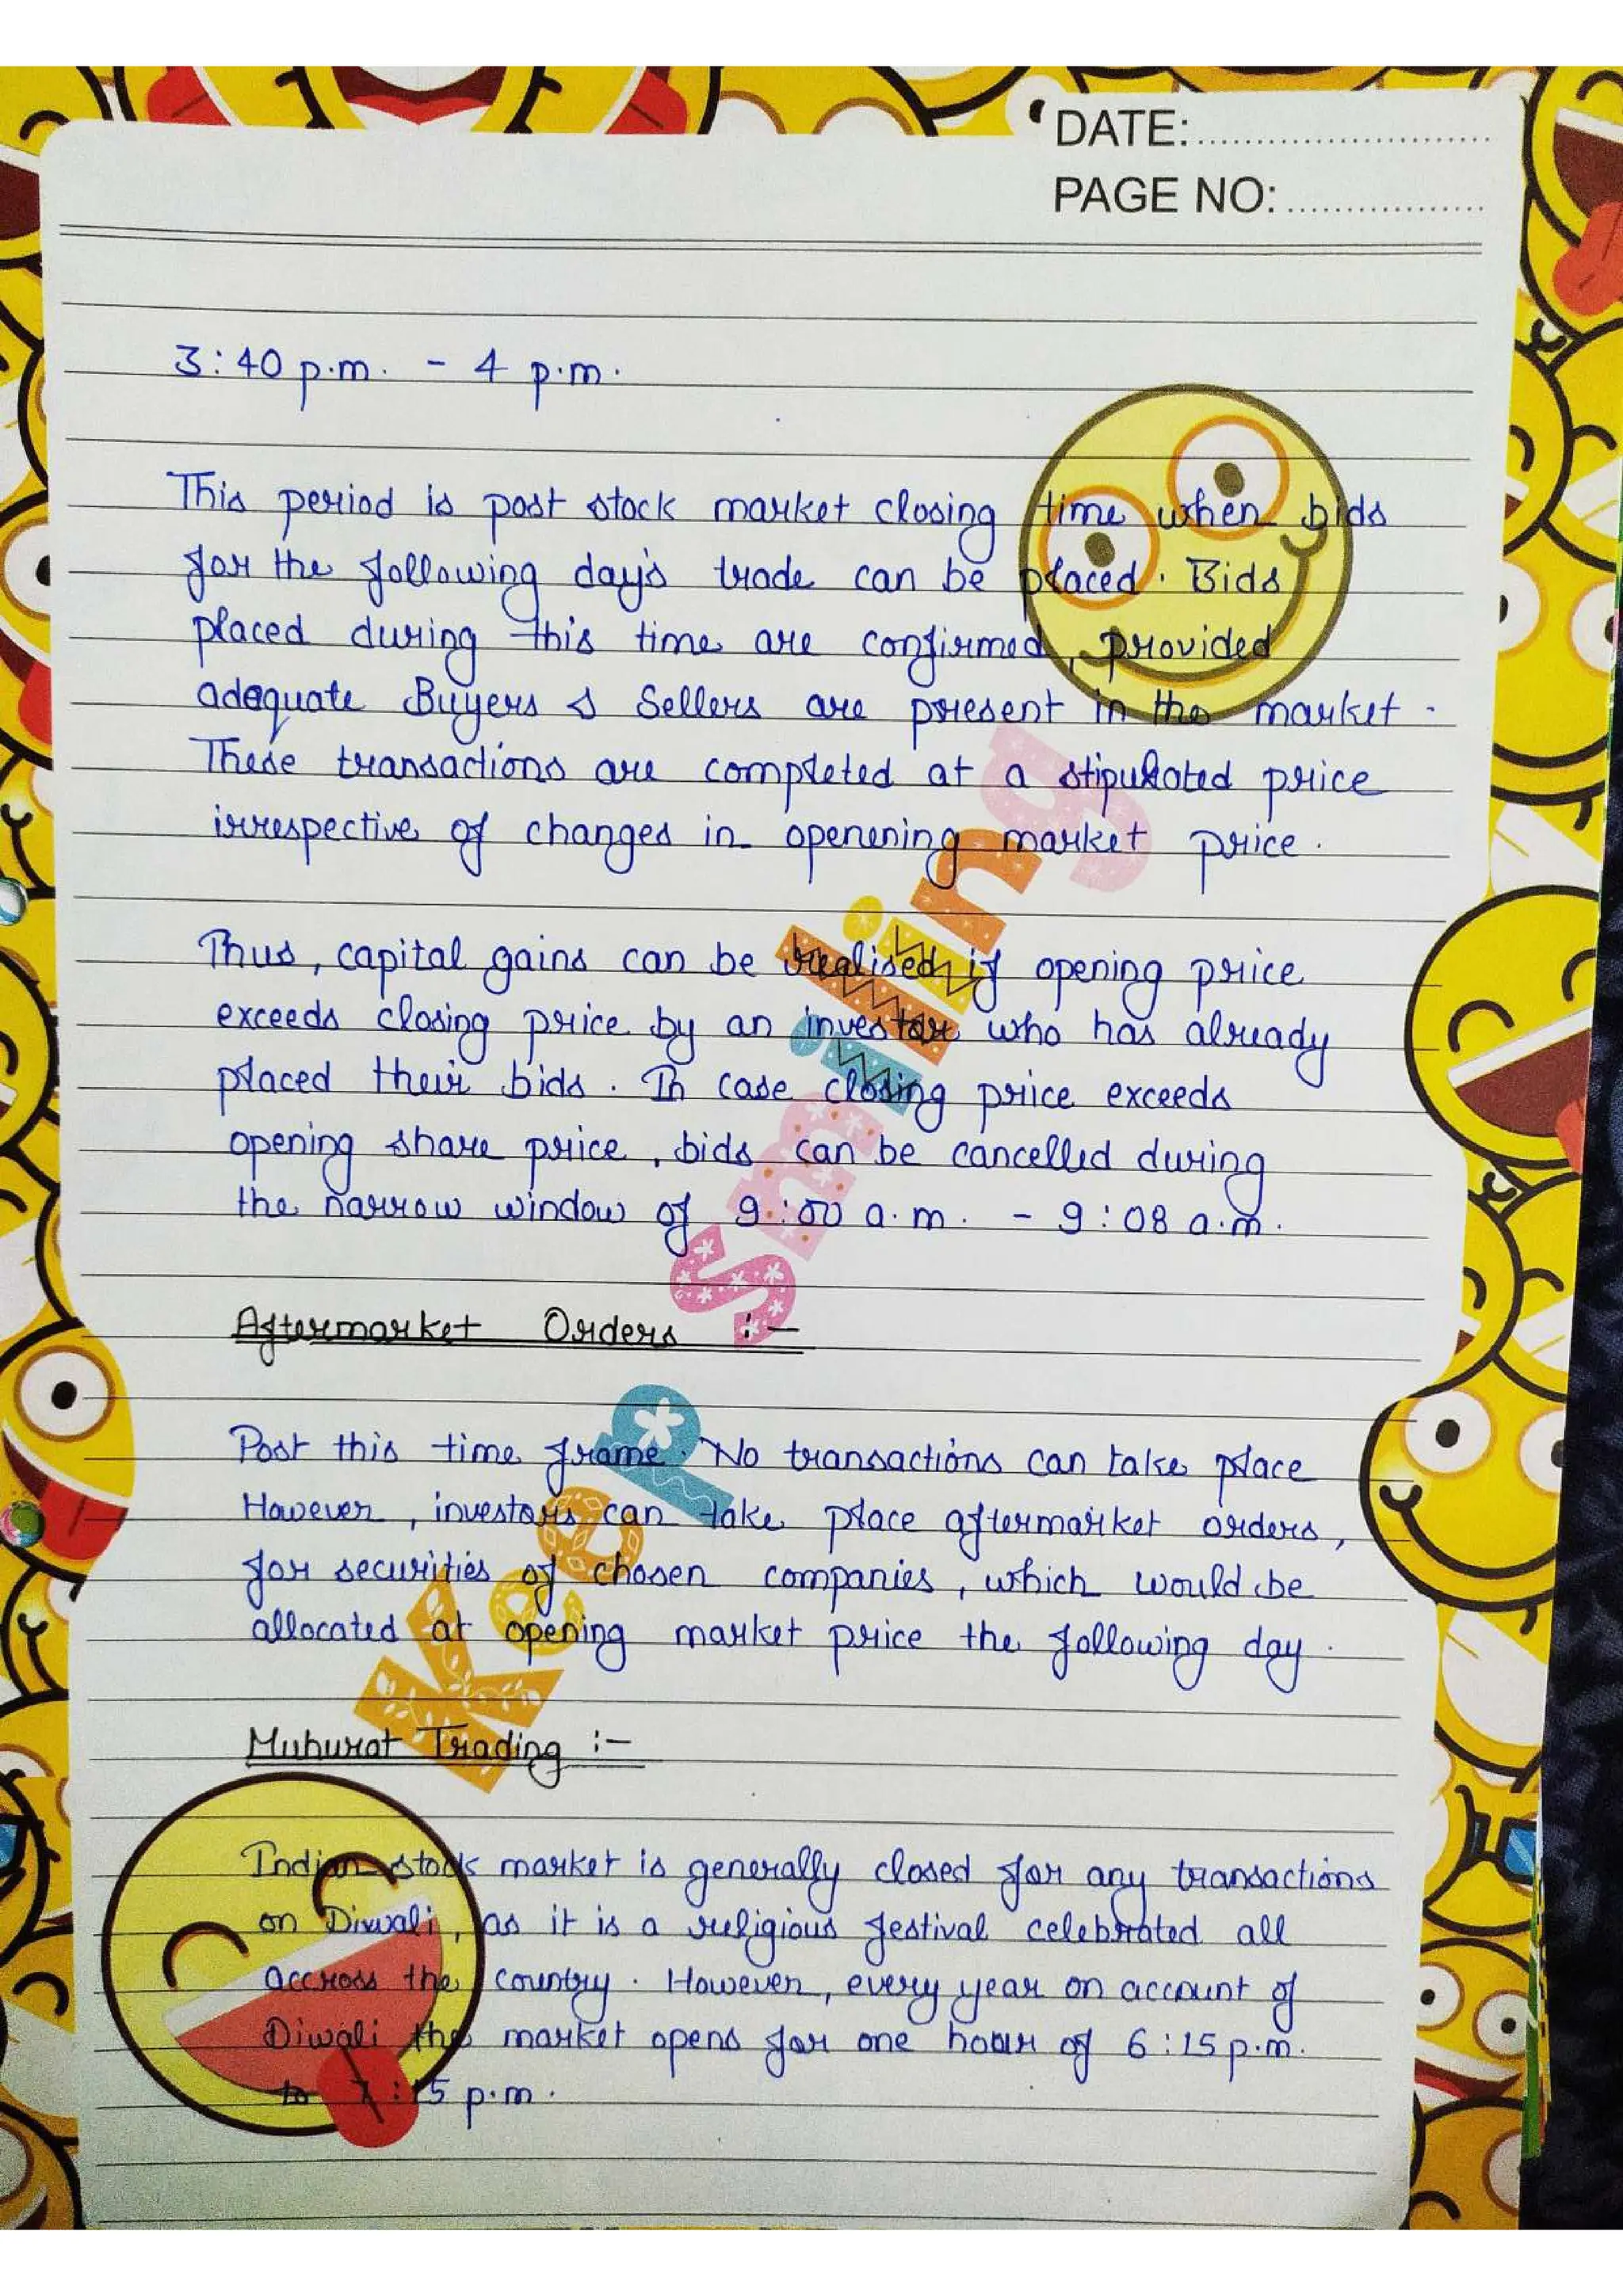 DATE:..............................
PAGE NO: ....................
3:40 p.m. - 4 p.m.
This period is post stock market closing time when bids
for the following day's trade can be placed. Bids
placed during this time are confirmed, provided
adequate Buyers & Sellers are present in the market.
These transactions are completed at a stipulated price
irrespective of changes in openening market price.
Thus, capital gains can be realised if opening price
exceeds closing price by an investor who has already
placed their bids. In case closing price exceeds
opening share price, bids can be cancelled during
the narrow window of 9:00 a.m. - 9:08 a.m.
Aftermarket Orders :-
Post this time frame. No transactions can take place
However, investors can take place aftermarket orders,
for securities of chosen companies, which would be
allocated at opening market price the following day.
Muhurat Trading :-
Indian stock market is generally closed for any transactions
on Diwali, as it is a religious festival celebrated all
accross the country. However, every year on account of
Diwali the market opens for one hour of 6:15 p.m.
to 7:15 p.m.
Keep Smiling